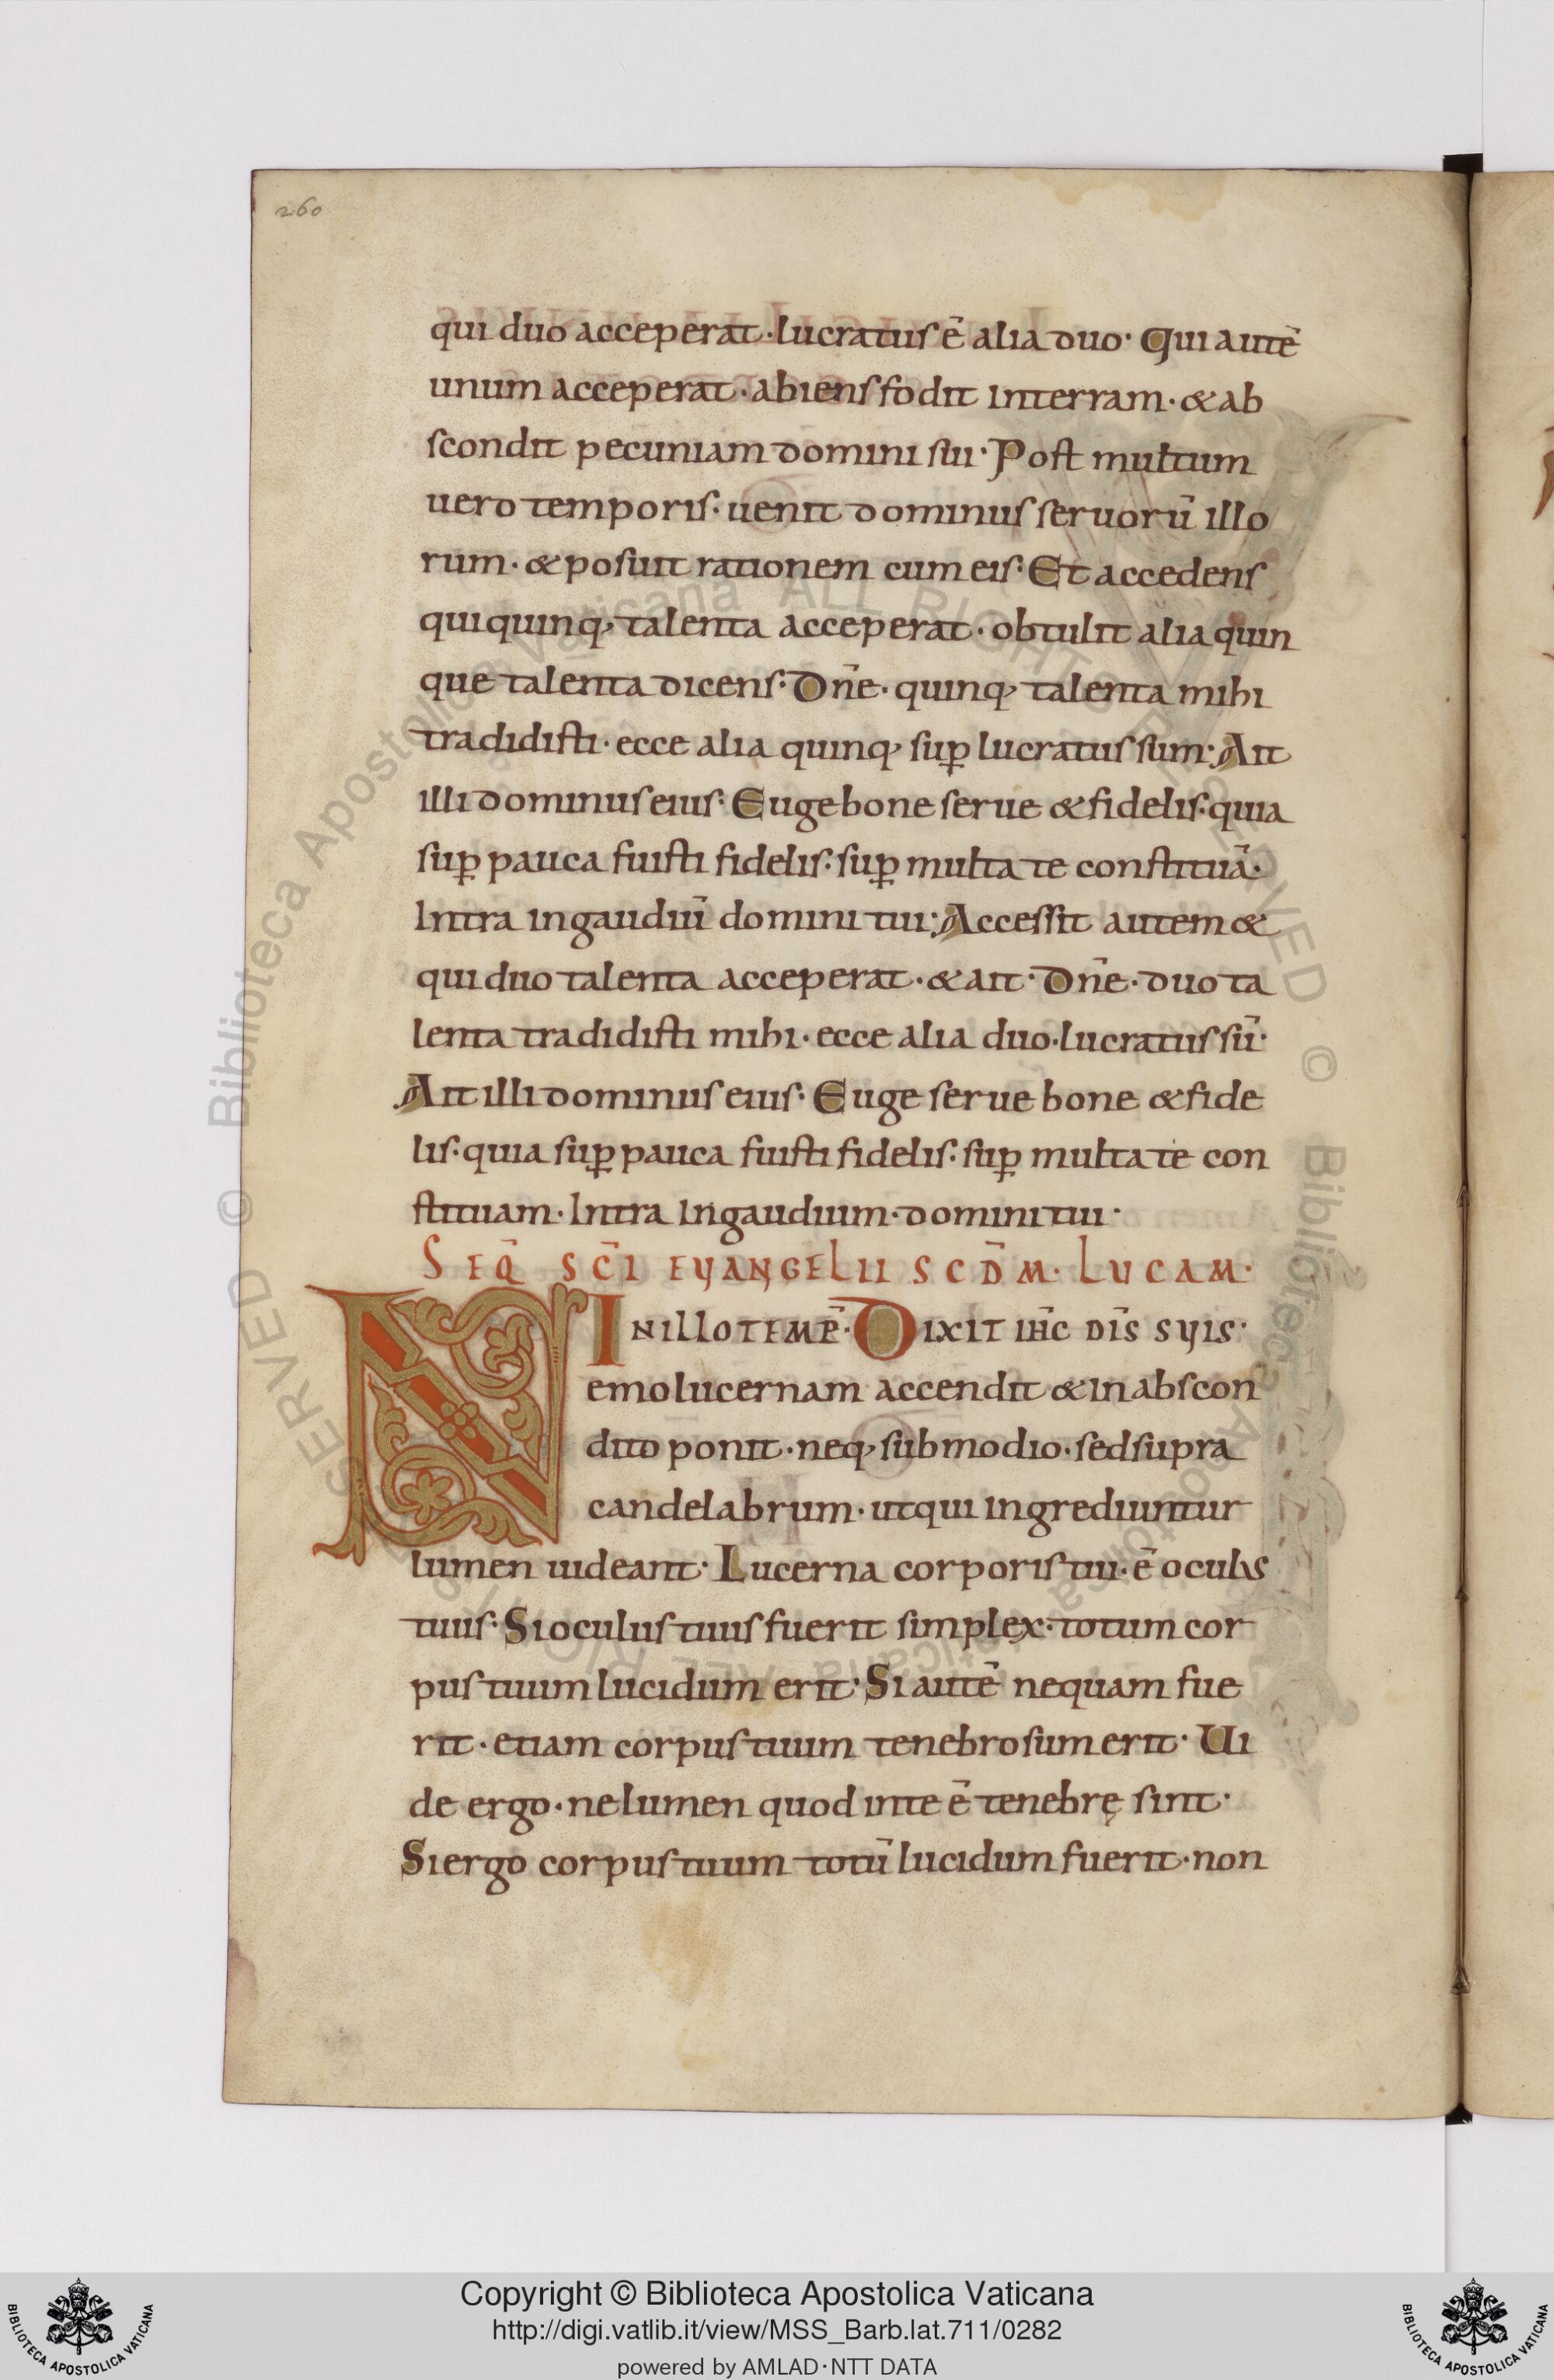 260
qui duo acceperat· lucratus ē alia duo· Qui autē
unum acceperat· abiens fodit in terram· & ab
scondit pecuniam domini sui· Post multum
uero temporis· uenit dominus seruorū illo
rum· & posuit rationem cum eis· Et accedens
qui quinq; talenta acceperat· obtulit alia quin
que talenta dicens· Dn̄e· quinq; talenta mihi
tradidisti· ecce alia quinq; sup̱ lucratus sum· Ait
illi dominus eius· Euge bone serue & fidelis· quia
sup̱ pauca fuisti fidelis· sup̱ multa te constituā·
Intra in gaudiū domini tui· Accessit autem &
qui duo talenta acceperat· & ait· Dn̄e· duo ta
lenta tradidisti mihi· ecce alia duo· lucratus sū·
Ait illi dominus eius· Euge serue bone & fide
lis· quia sup̱ pauca fuisti fidelis· sup̱ multa te con
stituam· Intra in gaudium· domini tui·
SEQ̄ SC̄I EVANGELII SCD̄M· LUCAM·
IN ILLO TEMP̄· DIXIT IH̄C DIS̄ SUIS·
Nemo lucernam accendit & in abscon
dito ponit· neq; sub modio· sed supra
candelabrum· ut qui ingrediuntur
lumen uideant· Lucerna corporis tui· ē oculus
tuus· Si oculus tuus fuerit simplex· totum cor
pus tuum lucidum erit· Si autē nequam fue
rit· etiam corpus tuum tenebrosum erit· Ui
de ergo· ne lumen quod in te ē tenebrę sint·
Si ergo corpus tuum totū lucidum fuerit· non
© Biblioteca Apostolica Vaticana ALL RIGHTS RESERVED
Copyright © Biblioteca Apostolica Vaticana
http://digi.vatlib.it/view/MSS_Barb.lat.711/0282
powered by AMLAD·NTT DATA
BIBLIOTECA APOSTOLICA VATICANA
BIBLIOTECA APOSTOLICA VATICANA